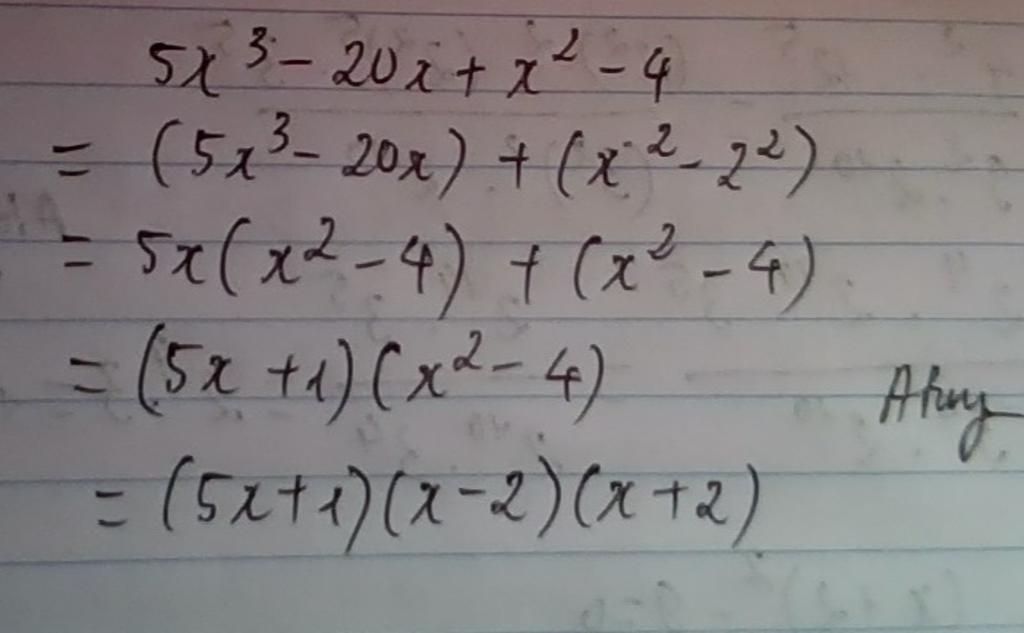 5x³ - 20x + x² - 4
= (5x³ - 20x) + (x² - 2²)
= 5x(x² - 4) + (x² - 4)
= (5x + 1)(x² - 4)
= (5x + 1)(x - 2)(x + 2)